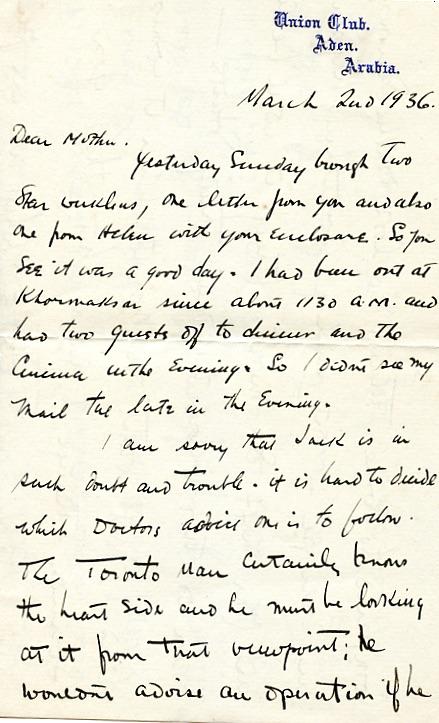 Union Club.
Aden.
Arabia.
March 2nd 1936.
Dear Mother.
Yesterday Sunday brough two
Star weeklies, one letter from you and also
one from Helen with your enclosure. So you
see it was a good day. I had been out at
Khormaksar since about 1130 a.m. and
had two guests of to dinner and the
Cinema in the Evening. So I didnt see my
mail till late in the Evening.
I am sorry that Jack is in
such doubt and trouble. it is hard to decide
which Doctors advice one is to follow.
The Toronto man certainly knows
the heart side and he must be looking
at it from that viewpoint; he
wouldnt advise an operation if he